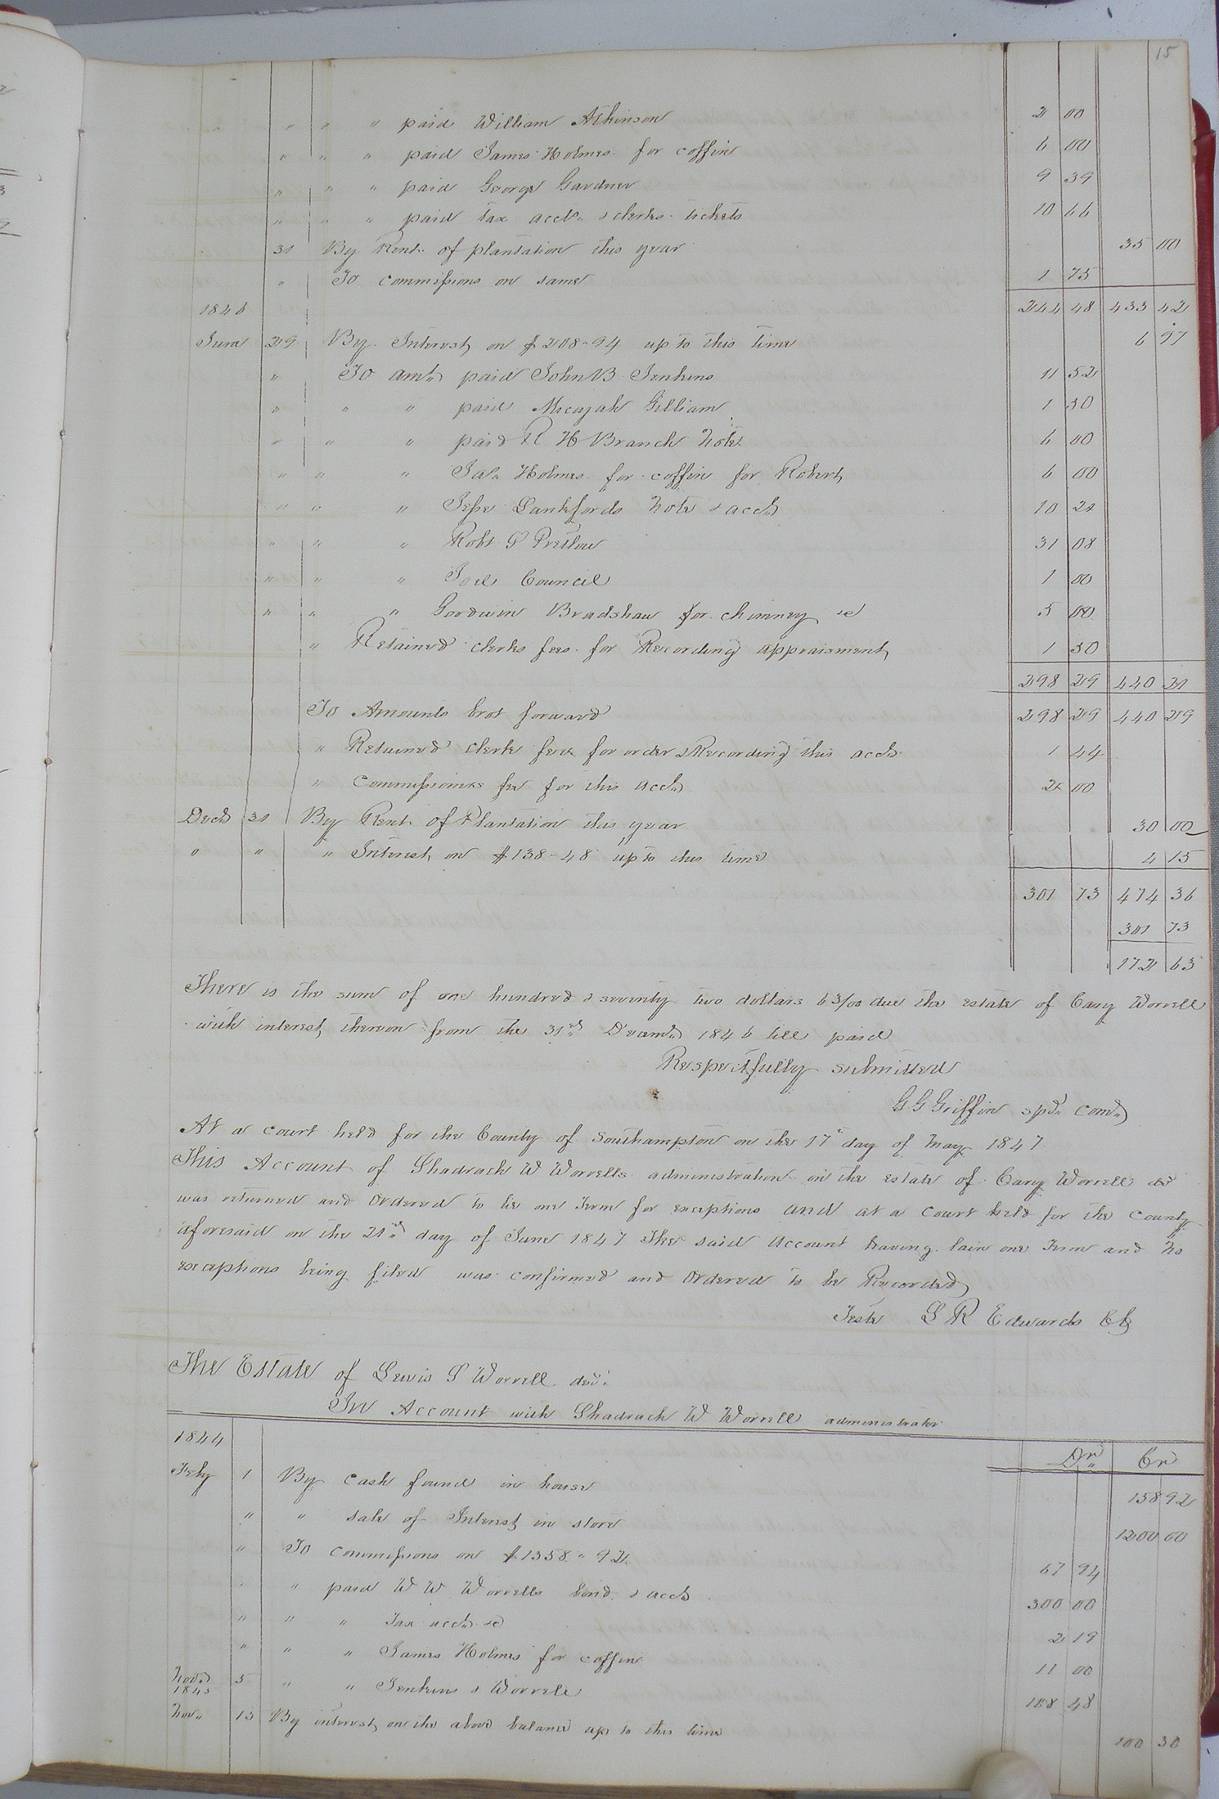 15
" " " paid William Atkinson 2 00
" " " paid James Holmes for coffin 6 00
" " " paid George Gardner 9 39
" " " paid tax acct. & clerks tickets 10 66
31 By Rent of plantation this year 35 00
" To commissions on same 1 75
1846 244 48 433 42
June 29 By Interest on $208-94 up to this time 6 97
" To amt. paid John B Jenkins 11 52
" " " paid Micajah Gilliam 1 50
" " " paid R H Branch Note 6 00
" " " Jas. Holmes for coffin for Robert 6 00
" " " Jesse Lankfords Note & acct 10 21
" " " Robt S Pretlow 31 08
" " " Joel Council 1 00
" " " Goodwin Bradshaw for chimney &c 5 00
" Retained clerks fees for Recording appraisment 1 50
298 29 440 29
To Amounts brot forward 298 29 440 29
" Retained clerk fees for order & Recording this acct 1 44
" Commissioners fee for this acct 2 00
Decr 31 By Rent of Plantation this year 30 00
" " " Interest on $138-48 up to this time 4 15
301 73 474 36
301 73
172 63
There is the sum of one hundred & seventy two dollars 63/00 due the estate of Cary Worrell
with interest thereon from the 31st Decemr 1846 till paid
Respectfully submitted
G G Griffin spl. comr
At a court held for the County of Southampton on the 17th day of May 1847
This Account of Shadrach W Worrells administration on the estate of Cary Worrell decd
was returned and Ordered to lie one Term for exceptions and at a court held for the County
aforesaid on the 21st day of June 1847 The said Account having lain one Term and No
exceptions being filed was confirmed and Ordered to be Recorded
Teste L R Edwards Clk
The Estate of Lewis S Worrell decd.
In Account with Shadrach W Worrell administrator
1844 Dr Cr
Feby 1 By cash found in house 158 92
" " sale of Interest in store 1200 00
" To commissions on $1358.92 67 94
" paid W W Worrells bond & acct 300 00
" " " Tax acct &c 2 19
" " " James Holmes for coffin 11 00
Novr 5 " " Jenkins & Worrell 108 48
1845
Nov. 15 By interest on the above balance up to this time 100 30